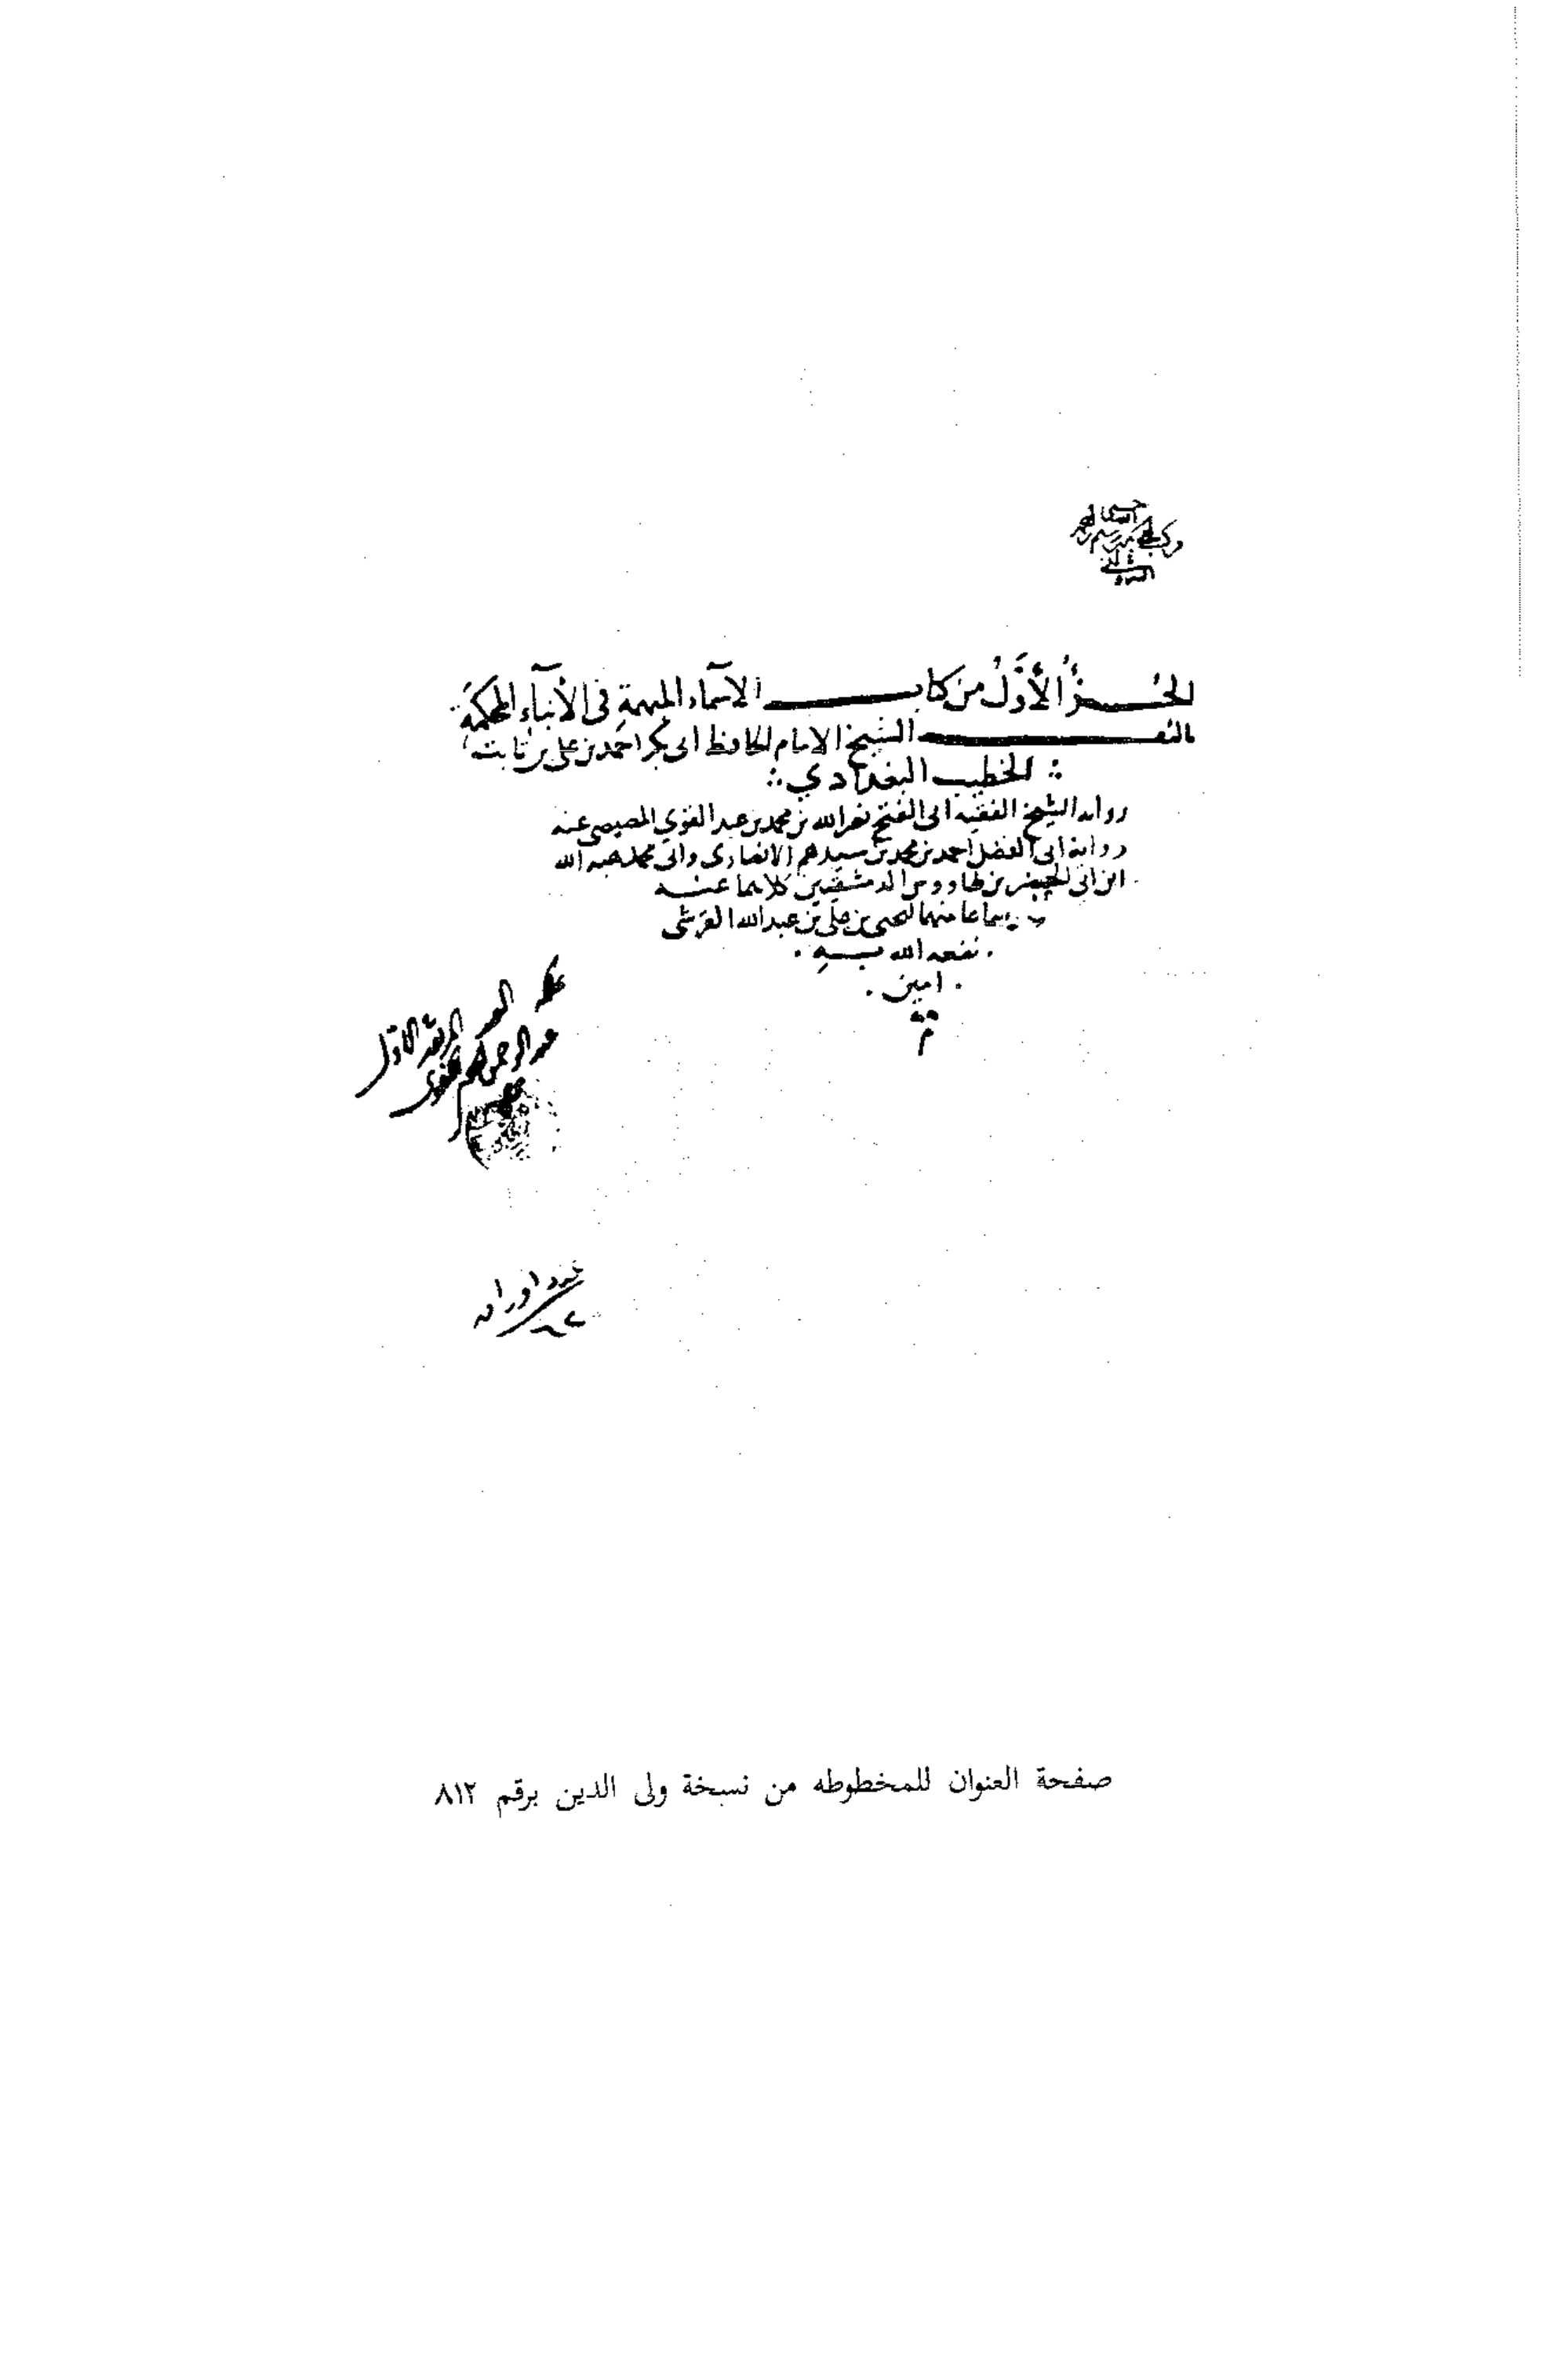 الجــزءُ الأوَّلُ من كتاب الأسماء المبهمة في الأنباء المحكمة
تأليف الشيخ الامام الحافظ ابى بكر احمد بن على بن ثابت
الخطيب البغدادي
رواية الشيخ الفقيه ابى الفتح نصر الله بن محمد بن عبد القوي المصيصى عنه
رواية ابى الفضل احمد بن محمد بن سيدهم الانصارى وابى محمد هبه الله
ابن ابى بن طاووس الدمشقيين كلاهما عنه
سماعا منهما ليحيى بن على بن عبد الله القرشى
نفعه الله به
امين
عدد اوراق
صفحة العنوان للمخطوطه من نسخة ولى الدين برقم ٨١٢